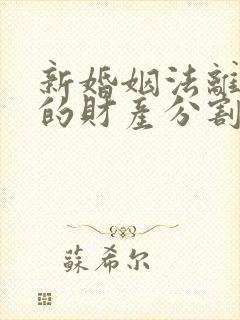 新婚姻法離
的財產分割
蘇希尔